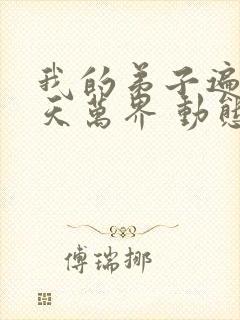 我的弟子遍
天萬界 動態
傅瑞挪